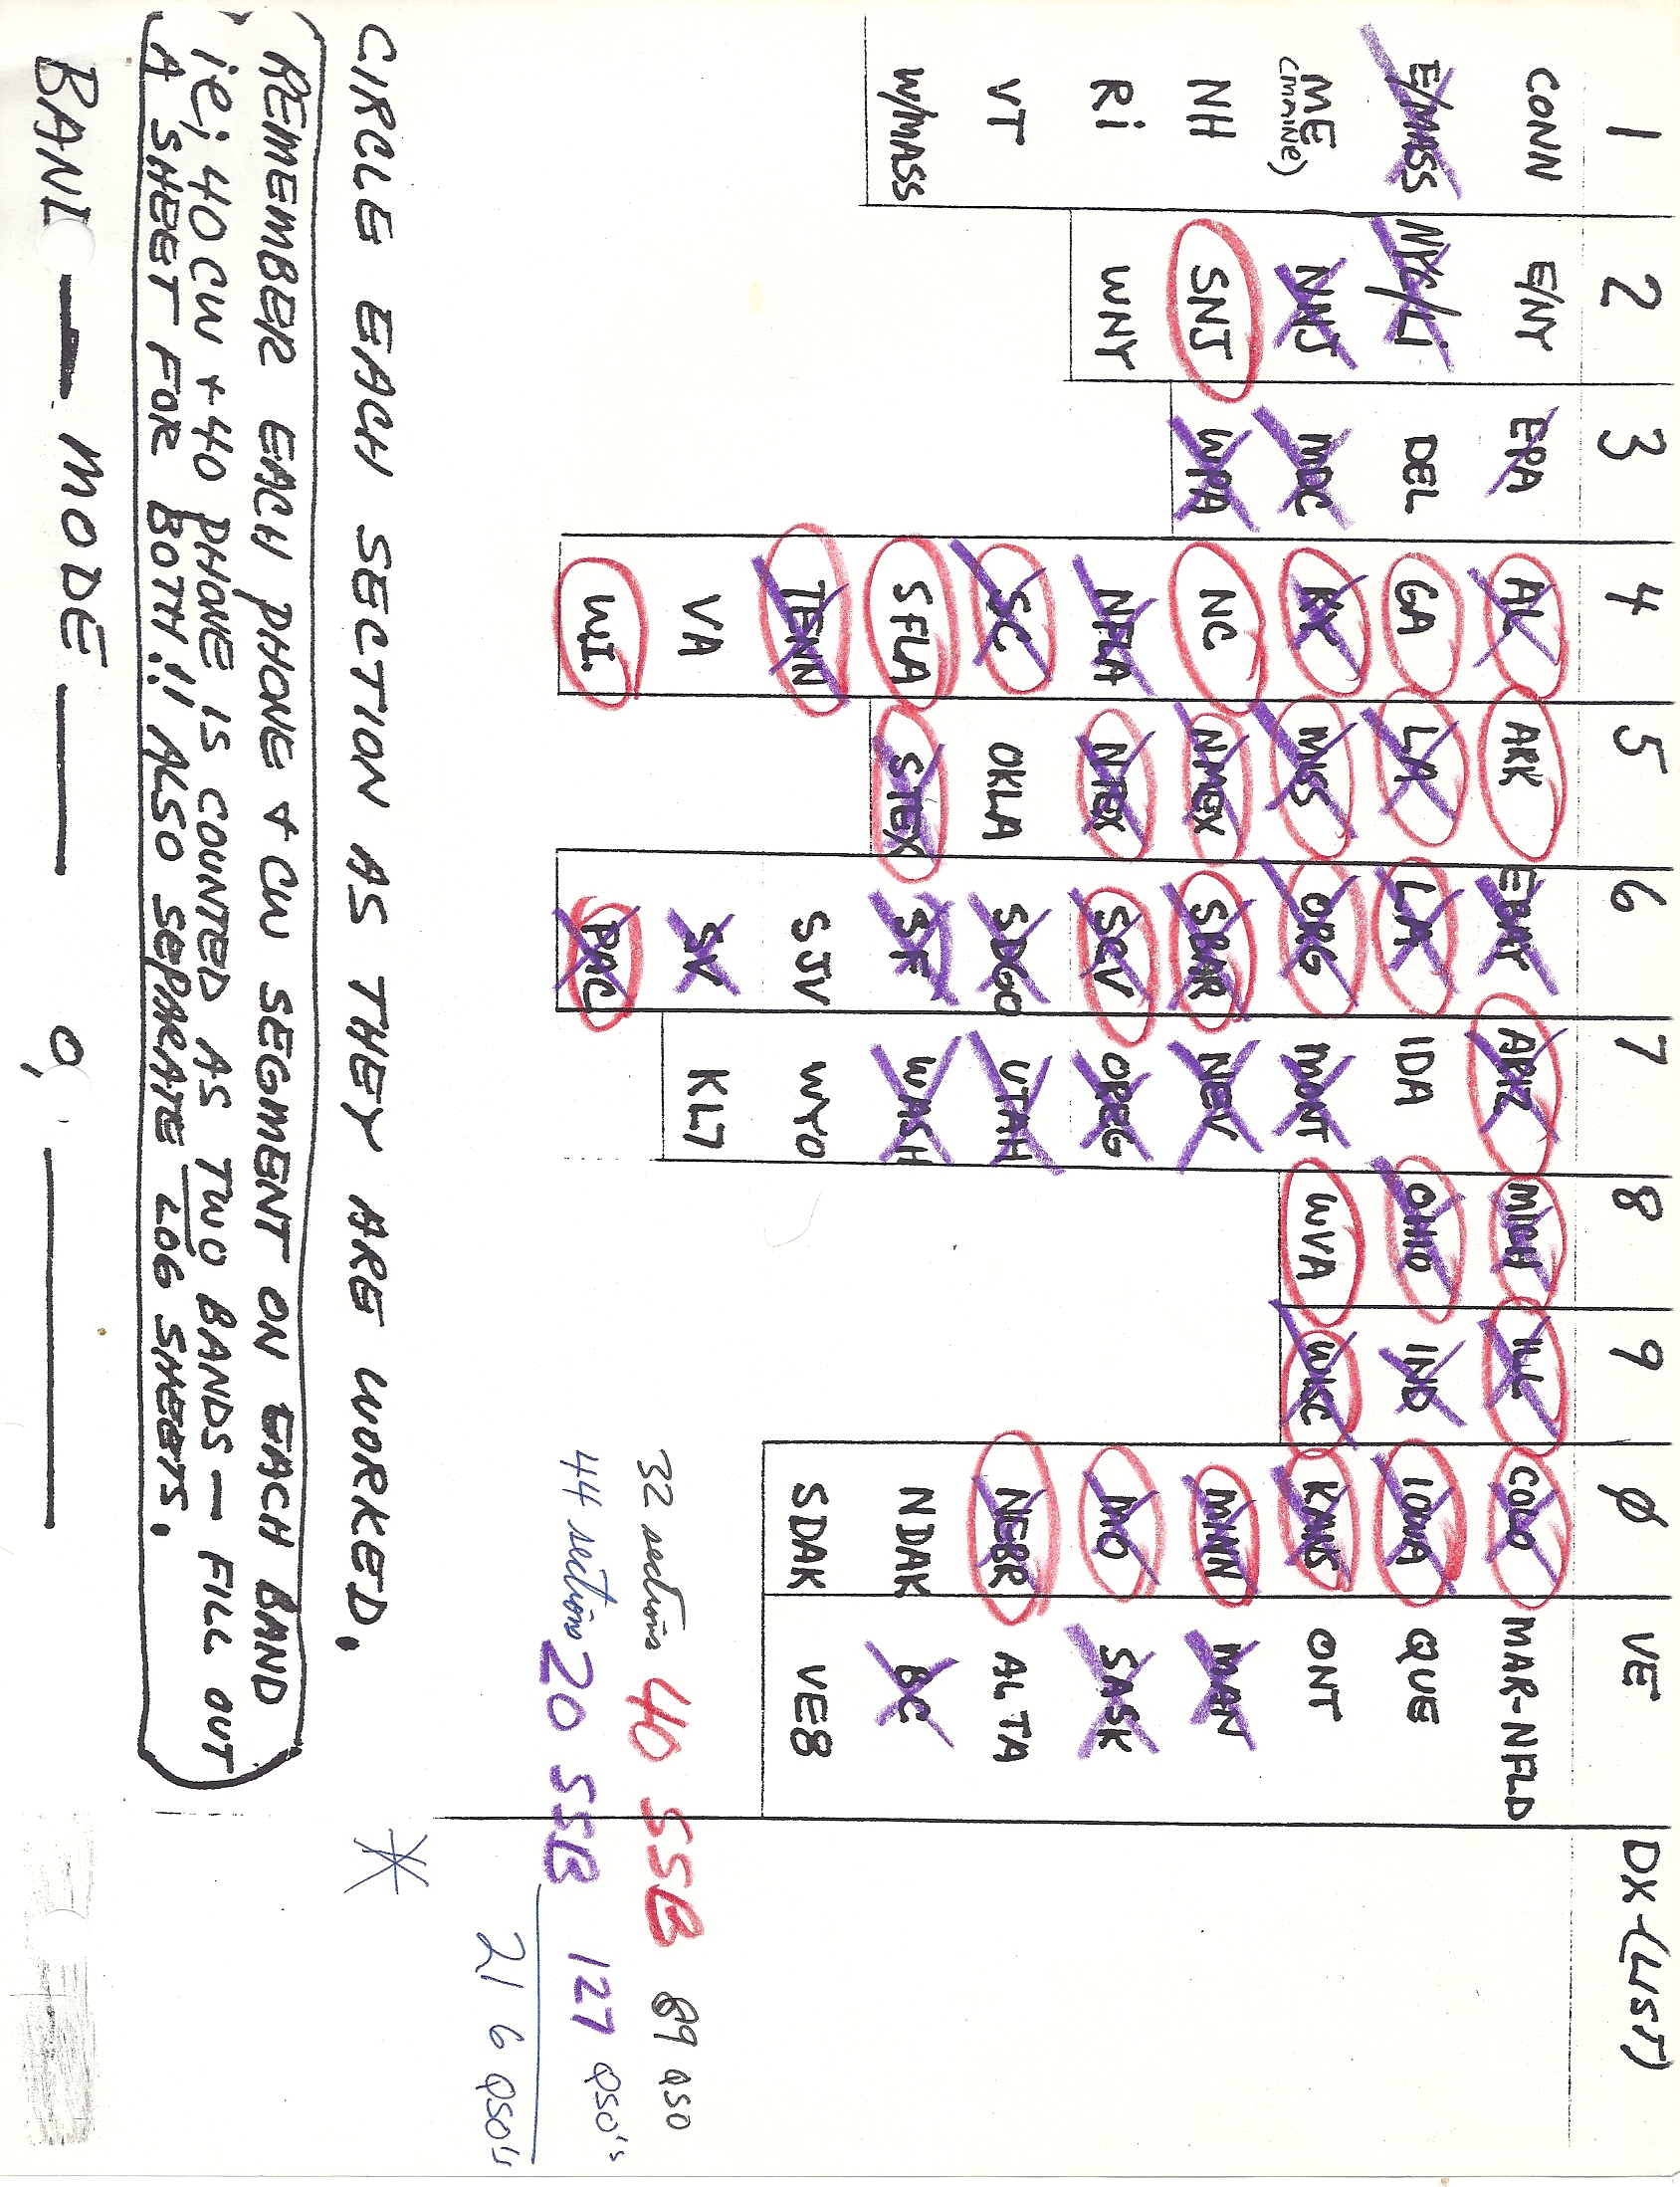 1 2 3 4 5 6 7 8 9 Ø VE DX-(LIST)
CONN E/NY EPA AL ARK EBAY ARIZ MICH ILL COLO MAR-NFLD
E/MASS NYC/LI DEL GA LA LA IDA OHIO IND IOWA QUE
ME (MAINE) NNJ MDC KY MISS ORG MONT WVA WISC KANS ONT
NH SNJ WPA NC NMEX SBAR NEV MINN MAN
Ri WNY NFLA NTEX SCV OREG MO SASK
VT SC OKLA SDGO UTAH NEBR ALTA
W/MASS SFLA STEX SF WASH NDAK BC
TENN SJV WYO SDAK VE8
VA SV KL7
W.I. PAC
32 sections 40 SSB 89 QSO
44 sections 20 SSB 127 QSO's
216 QSO's
CIRCLE EACH SECTION AS THEY ARE WORKED. *
(REMEMBER EACH PHONE + CW SEGMENT ON EACH BAND
ie; 40 CW + 40 PHONE IS COUNTED AS TWO BANDS — FILL OUT
A SHEET FOR BOTH!!! ALSO SEPARATE LOG SHEETS.
BAND — MODE —